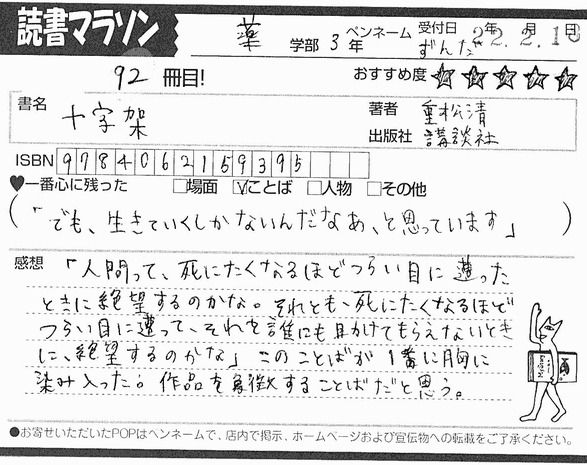 読書マラソン
薬 学部 3年 ペンネーム ずんだ 受付日 22.2.18
92 冊目! おすすめ度 ☆☆☆☆☆
書名 十字架
著者 重松清
出版社 講談社
ISBN 9784062159395
♥一番心に残った □場面 ☑ことば □人物 □その他
(「でも、生きていくしかないんだなあ、と思っています」)
感想 「人間って、死にたくなるほどつらい目に遭った
ときに絶望するのかな。それとも、死にたくなるほど
つらい目に遭って、それを誰にも助けてもらえないとき
に、絶望するのかな」このことばが1番に胸に
染み入った。作品を象徴することばだと思う。
●お寄せいただいたPOPはペンネームで、店内で掲示、ホームページおよび宣伝物への転載をご了承ください。